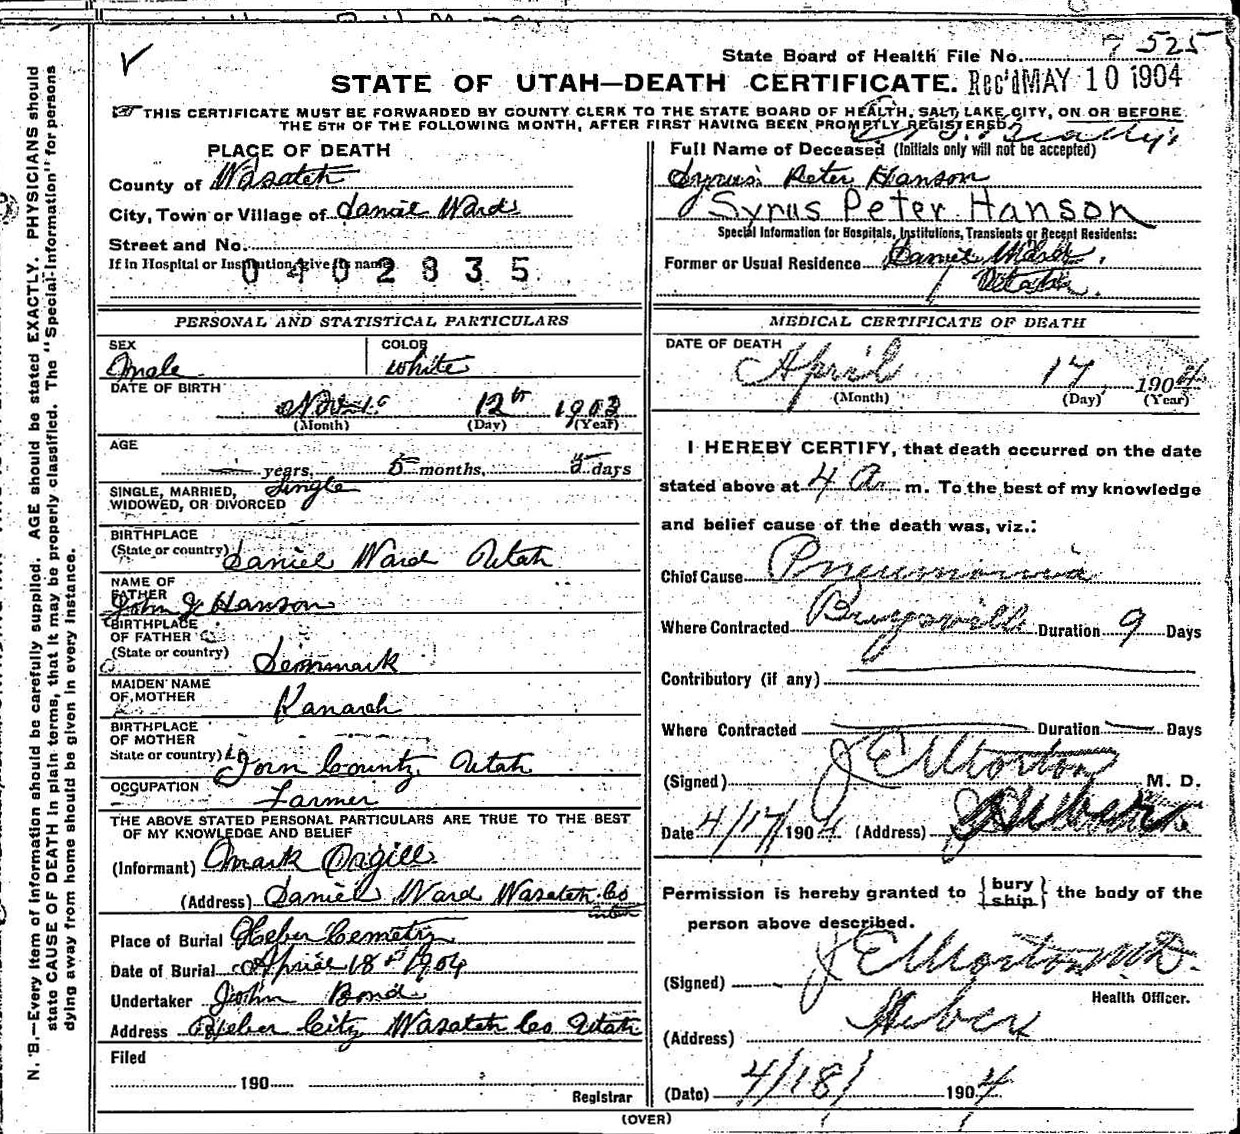 State Board of Health File No. 7525
STATE OF UTAH—DEATH CERTIFICATE. Rec'd MAY 10 1904
THIS CERTIFICATE MUST BE FORWARDED BY COUNTY CLERK TO THE STATE BOARD OF HEALTH, SALT LAKE CITY, ON OR BEFORE
THE 5TH OF THE FOLLOWING MONTH, AFTER FIRST HAVING BEEN PROMPTLY REGISTERED.
PLACE OF DEATH
County of Wasatch
City, Town or Village of Daniel Ward
Street and No.
If in Hospital or Institution, give its name
0402835
Full Name of Deceased (Initials only will not be accepted)
Syrus Peter Hanson
Syrus Peter Hanson
Special Information for Hospitals, Institutions, Transients or Recent Residents:
Former or Usual Residence Daniel Ward,
Utah.
PERSONAL AND STATISTICAL PARTICULARS
SEX
Male
COLOR
White
DATE OF BIRTH
Nov 12th 1903
(Month) (Day) (Year)
AGE
— years, 5 months, 5 days
SINGLE, MARRIED,
WIDOWED, OR DIVORCED Single
BIRTHPLACE
(State or country) Daniel Ward Utah
NAME OF
FATHER
John J Hanson
BIRTHPLACE
OF FATHER
(State or country) Denmark
MAIDEN NAME
OF MOTHER
BIRTHPLACE
OF MOTHER
State or country) County, Utah
OCCUPATION Farmer
THE ABOVE STATED PERSONAL PARTICULARS ARE TRUE TO THE BEST
OF MY KNOWLEDGE AND BELIEF
(Informant) Mark Orgill
(Address) Daniel Ward Wasatch Co
Utah
Place of Burial Heber Cemetry
Date of Burial April 18th 1904
Undertaker John Bond
Address Heber City Wasatch Co Utah
Filed
190
Registrar
MEDICAL CERTIFICATE OF DEATH
DATE OF DEATH
April 17, 1904
(Month) (Day) (Year)
I HEREBY CERTIFY, that death occurred on the date
stated above at 4 a. m. To the best of my knowledge
and belief cause of the death was, viz.:
Chief Cause Pneumonia
Where Contracted Duration 9 Days
Contributory (if any)
Where Contracted Duration — Days
(Signed) J E Morton M. D.
Date 4/17/1904 (Address) Heber
Permission is hereby granted to { bury ship } the body of the
person above described.
(Signed) J E Morton M.D.
Health Officer.
(Address) Heber
(Date) 4/18/ 1904
(OVER)
N. B.—Every item of information should be carefully supplied. AGE should be stated EXACTLY. PHYSICIANS should
state CAUSE OF DEATH in plain terms, that it may be properly classified. The "Special Information" for persons
dying away from home should be given in every instance.